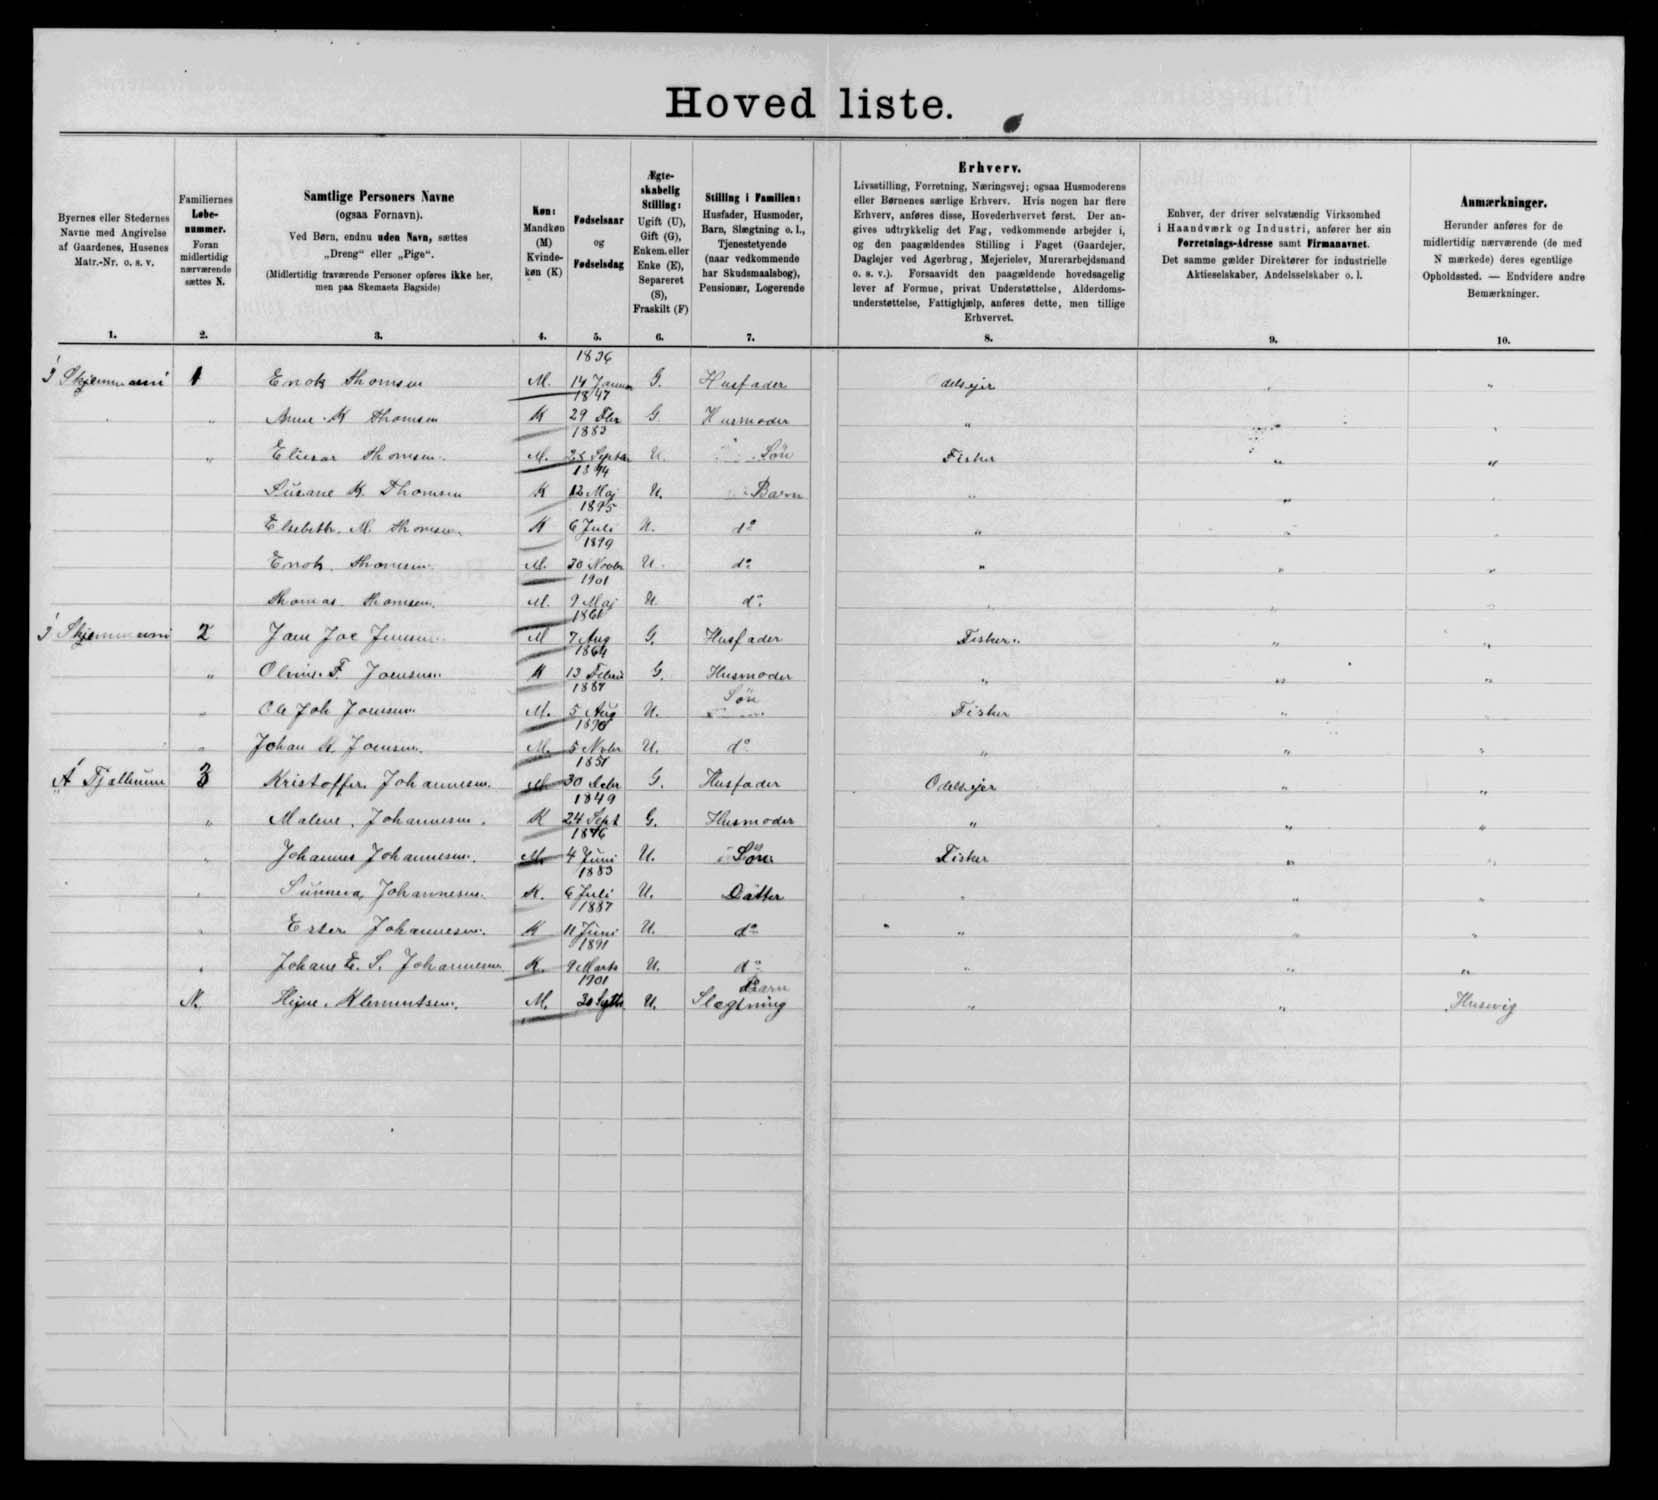 Hovedliste.
Byernes eller Stedernes Navne med Angivelse af Gaardenes, Husenes Matr.-Nr. o. s. v.
Familiernes Løbe-nummer. Foran midlertidig nærværende sættes N.
Samtlige Personers Navne (ogsaa Fornavn). Ved Børn, endnu uden Navn, sættes „Dreng“ eller „Pige“. (Midlertidig fraværende Personer opføres ikke her, men paa Skemaets Bagside)
Køn: Mandkøn (M) Kvinde-køn (K)
Fødselsaar og Fødselsdag
Ægte-skabelig Stilling: Ugift (U), Gift (G), Enkem. eller Enke (E), Separeret (S), Fraskilt (F)
Stilling i Familien: Husfader, Husmoder, Barn, Slægtning o. l., Tjenestetyende (naar vedkommende har Skudsmaalsbog), Pensionær, Logerende
Erhverv. Livsstilling, Forretning, Næringsvej; ogsaa Husmoderens eller Børnenes særlige Erhverv. Hvis nogen har flere Erhverv, anføres disse, Hovederhvervet først. Der angives udtrykkelig det Fag, vedkommende arbejder i, og den paagældendes Stilling i Faget (Gaardejer, Daglejer ved Agerbrug, Mejerielev, Murerarbejdsmand o. s. v.). Forsaavidt den paagældende hovedsagelig lever af Formue, privat Understøttelse, Alderdoms-understøttelse, Fattighjælp, anføres dette, men tillige Erhvervet.
Enhver, der driver selvstændig Virksomhed i Haandværk og Industri, anfører her sin Forretnings-Adresse samt Firmanavnet. Det samme gælder Direktører for industrielle Aktieselskaber, Andelsselskaber o. l.
Anmærkninger. Herunder anføres for de midlertidig nærværende (de med N mærkede) deres egentlige Opholdssted. — Endvidere andre Bemærkninger.
1. 2. 3. 4. 5. 6. 7. 8. 9. 10.
1836
1 Enok Thomsen M. 14 G. Husfader "
1847
" Anne K Thomsen K 29 G. Husmoder " "
1883
" Thomsen. M. U. Søn Fisker " "
1894
Susane K. Thomsen K 12 Maj U. Barn " "
1895
Elsebeth. M. Thomsen. K 6 Juli U. do " "
1899
Enok. Thomsen. M. 30 Novbr U. do " " "
1901
Thomas. Thomsen. M. 9 Maj U. do " "
2 M 7 Aug G. Husfader Fisker. " "
1864
" K 13 G. Husmoder " " "
1887
" M. 5 Aug U. Søn Fisker " "
" Johan M. 5 Novbr U. do " " "
3 Kristoffer. Johannesen. M 30 G. Husfader Odelsejer " "
1849
" Malene. Johannesen. K 24 Sept G. Husmoder " " "
1876
" Johannes Johannesen. M. 4 Juni U. Søn Fisker " "
1883
" Sunneva. Johannesen. K. 6 Juli U. Datter " " "
1887
" Ester. Johannesen. K 11 Juni U. do " " "
1891
" Johanne E. S. Johannesen. K. 9 Marts U. do " " "
1901 Barn
N. Klementsen. M. 30 U. Slægtning " " Husevig